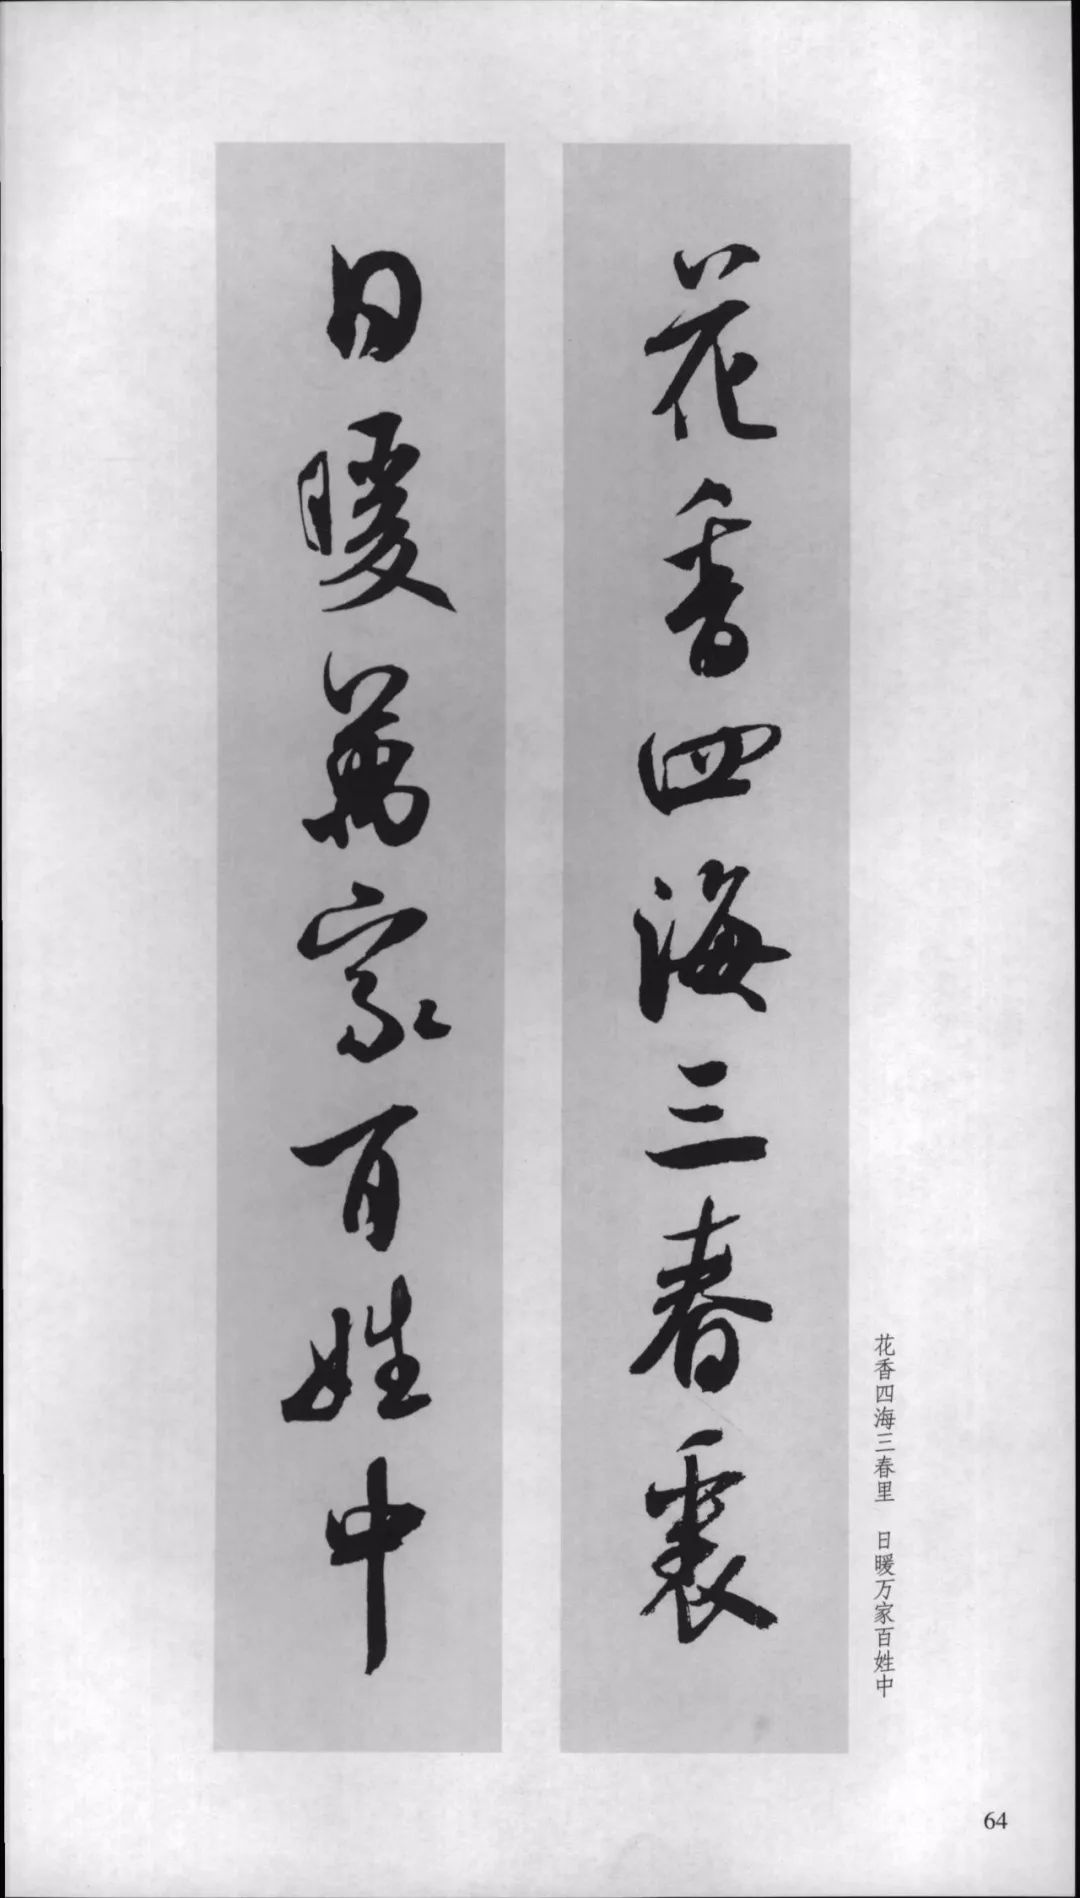 花香四海三春裏
日暖萬家百姓中
花香四海三春里 日暖万家百姓中
64